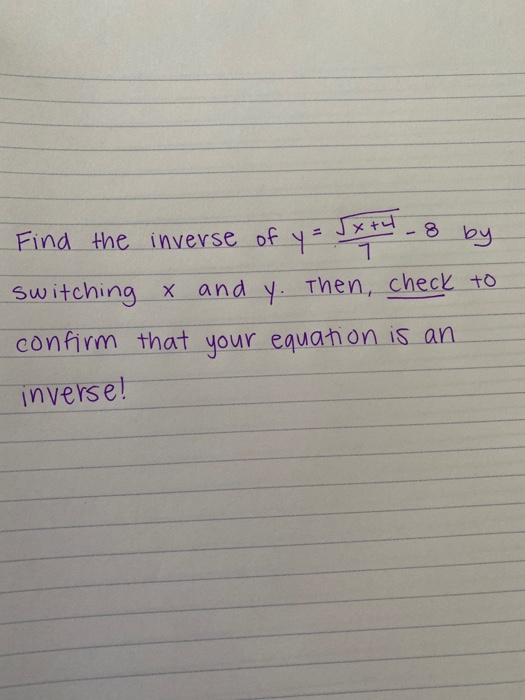 Find the inverse of y = √(x+4)/7 - 8 by
switching x and y. Then, check to
confirm that your equation is an
inverse!